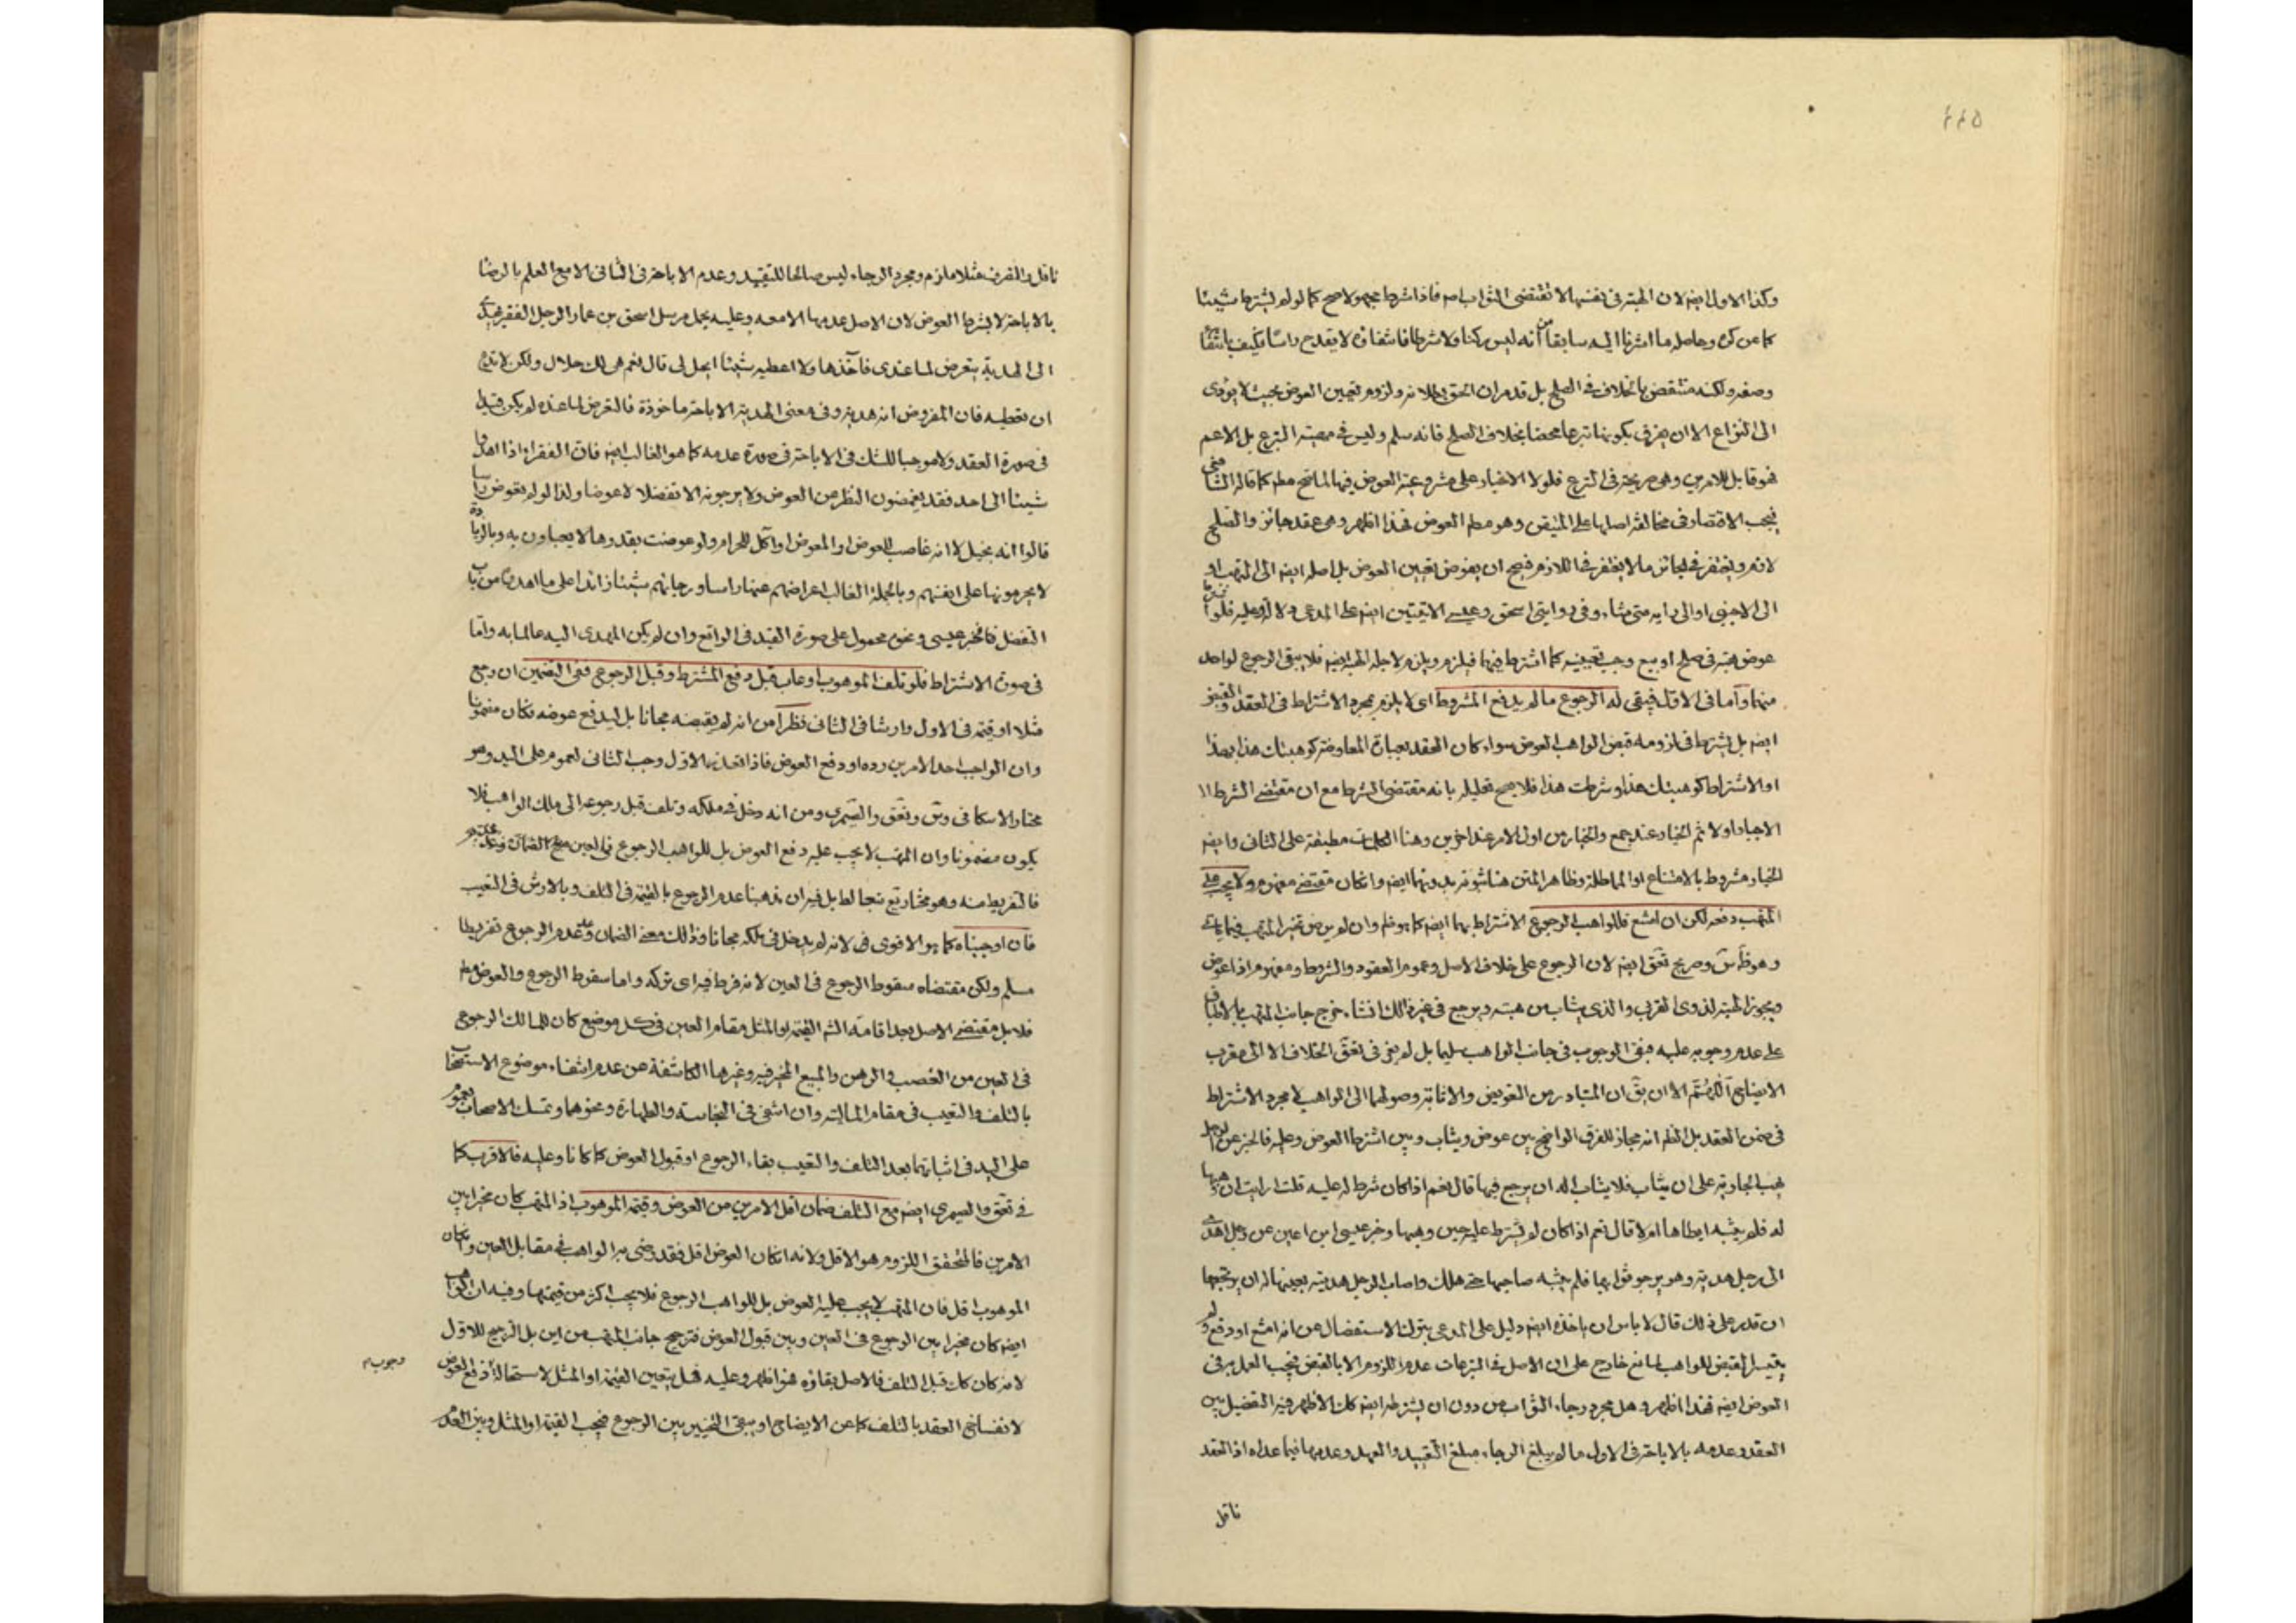 وكذا الاول ايضا لان الهبة في نفسها لا تقتضي الثواب فاذا شرط مجهولا صح كما لو لم يشترط شيئا
كما عن كره وحاصله ما اشرنا اليه سابقا من أنه ليس ركنا ولا شرطا فانتفاؤه لا يقدح راسا فكيف بانتفا
وصفه ولكنه منتقض بالخلاف في الصلح بل قد مر ان الحق بطلانه ولزوم تعيين العوض بحيث لا يؤدى
الى النزاع الا ان يفرق بكونها تبرعا محضا بخلاف الصلح فانه سلم وليس في مهيته التبرع بل الاعم
فهو قابل للامرين وهي صريحة في التبرع فلولا الاخبار على مشروعية العوض فيها لما صح مط كما قاله الشافعي
فيجب الاقتصار في مخالفة اصلها على المتيقن وهو مط العوض فهذا اظهر وهي عقد جائز والصلح
لازم ويغتفر في الجائز ما لا يغتفر في اللازم فيصح ان يفوض تعيين العوض بل اصله ايضا الى المتهب او
الى الاجنبى او الى رايه متى شاء وفي روايتى اسحق وعيسى الاتيتين ايضا على المدعى دلالة وعليه فلو
عوض هبته في صلح او بيع وجب تعيينه كما اشترط فيهما فيلزم ويلزم لاجله الهبة ايضا فلا يبقى الرجوع لواحد
منهما واما في الاول فيبقى له الرجوع ما لم يدفع المشروط اى لا يلزم بمجرد الاشتراط في العقد والقبض
ايضا بل يشترط في لزومه قبض الواهب العوض سواء كان العقد بعبارة المعاوضة كوهبتك هذا بهذا
او الاشتراط كوهبتك هذا وشرطت هذا فلا يصح تعليله بانه مقتضى الشرط مع ان مقتضى الشرط
الاجبار اولا ثم الخيار عند جمع والخيار من اول الامر عند اخرين وهنا الكلمات مطبقة على الثانى وايضا
الخيار مشروط بالامتناع او المماطلة وظاهر المتن هنا ثبوته بدونهما ايضا وان كان مقتضى مفهوم ولا يجب على
المتهب دفعه لكن ان امتنع فللواهب الرجوع الاشتراط بهما ايضا كما يوفلم وان لم يرض تخير المتهب فيما ياتى
وهو ظاهر س وصريح تعق ايضا لان الرجوع على خلاف الاصل وعموم العقود والشروط ومفهوم اذا عوض
ويجوز الهبة لذوى القربى والذى يثاب من هبته ويرجع في غير ذلك ان شاء خرج جانب المتهب بالاطباق
على عدم وجوبه عليه فبقى الوجوب في جانب الواهب سليما بل لم يعز في تعق الخلاف الا الى مقرب
الايضاح الا ان يق ان المتبادر من التعويض والاثابة وصولهما الى الواهب لا مجرد الاشتراط
في ضمن العقد بل الظم انه مجاز للفرق الواضح بين عوض ويثاب وبين اشترط العوض وعليه فالخبر عن الرجل
يهب الجارية على ان يثاب فلا يثاب اله ان يرجع فيها قال نعم اذا كان شرط له عليه قلت ارايت ان وهبها
له فلم يثبه ايطاها ام لا قال نعم اذا كان لم يشترط عليه حين وهبها وخبر عيسى ابن اعين عن رجل اهدى
الى رجل هدية وهو يرجو ثوابها فلم يثبه صاحبها حتى هلك واصاب الرجل هديته بعينها له ان يرتجعها
ان قدر على ذلك قال لا باس ان ياخذه ايضا دليل على المدعى بترك الاستفصال عن انه امتنع او دفع ولم
يتيسر القبض للواهب لمانع خارج على ان الاصل في التبرعات عدم اللزوم الا بالقبض فيجب العمل به في
العوض ايضا فهذا اظهر وهل مجرد رجاء الثواب من دون ان يشترطه ايضا كك الاظهر فيه التفصيل بين
العقد وعدمه بالاباحة في الاول ما لم يبلغ الرجاء مبلغ التقييد والعهد وعدمها فيما عداه اذ العقد
ناقل
ناقل والقرف مثلا ملازم ومجرد الرجاء ليس صالحا للتقييد وعدم الاباحة في الثانى الا مع العلم بالرضا
بالاباحة لا بشرط العوض لان الاصل عدمها الا معه وعليه يحمل مرسل اسحق بن عمار الرجل الفقير يهدى
الى الهدية يتعرض لما عندى فآخذها ولا اعطيه شيئا ايحل لى قال نعم هى لك حلال ولكن لا تدع
ان تعطيه فان المفروض انه هدية وفي معنى الهدية الاباحة ماخوذة فالتعرض لما عنده لم يكن قيدا
في صورة العقد ولا موجبا للشك في الاباحة في صورة عدمه كما هو الغالب ايضا فان الفقراء اذا اهدوا
شيئا الى احد فقد يغمضون النظر عن العوض ولا يرجونه الا تفضلا لا عوضا ولذا لو لم يعوض
قالوا انه بخيل لا انه غاصب للعوض او المعوض او آكل للحرام ولو عوضت بقدرها لا يعباون به وبالزيادة
لا يحرمونها على انفسهم وبالجملة الغالب اعراضهم عنها راسا ورجائهم شيئا زائدا على ما اهدى من باب
التفضل فالخبر عيسى ونحوه محمول على صورة القيد في الواقع وان لم يكن المهدى اليه عالما به واما
في صورة الاشتراط فلو تلف الموهوب او عاب قبل دفع المشترط وقبل الرجوع ففي التضمين ان رجع
مثلا او قيمة في الاول وارشا في الثانى نظر من انه لم يقبضه مجانا بل ليدفع عوضه فكان مضمونا
وان الواجب احد الامرين رده او دفع العوض فاذا تعذر الاول وجب الثانى لعموم على اليد وهو
مختار الاسكافى وس وتعق والصيمرى ومن انه دخل في ملكه وتلف قبل رجوعه الى ملك الواهب فلا
يكون مضمونا وان المتهب لا يجب عليه دفع العوض بل للواهب الرجوع في العين
فالتفريط منه وهو مختار تع بل فيه ان مذهبنا عدم الرجوع بالقيمة في التلف وبالارش في التعيب
فان اوجبناه كما هو الاقوى لانه لم يدخل في ملكه مجانا وذلك معنى الضمان وعد عدم الرجوع تفريطا
مسلم ولكن مقتضاه سقوط الرجوع في العين لانه فرط فيه اى تركه واما سقوط الرجوع والعوض مط
فلا بل مقتضى الاصل بعد اقامة القيمة او المثل مقام العين في كل موضع كان للمالك الرجوع
في العين من الغصب والرهن والمبيع المخير فيه وغيرها الكاشفة عن عدم انتفاء موضوع الاستصحاب
بالتلف والتعيب في مقام المالية وان انتفى في النجاسة والطهارة ونحوهما وتمسك الاصحاب بعموم
على اليد في اثباتها بعد التلف والتعيب بقاء الرجوع او قبول العوض كما كانا وعليه فالاقرب كما
في تعق والصيمرى ايضا مع التلف ضمان اقل الامرين من العوض وقيمة الموهوب اذ المتهب كان مخيرا بين
الامرين فالمحقق اللزوم هو الاقل ولانه ان كان العوض اقل فقد رضى به الواهب في مقابل العين وان كان
الموهوب اقل فان المتهب لا يجب عليه العوض بل للواهب الرجوع فلا يجب اكثر من قيمتها وفيه ان الواهب
ايضا كان مخيرا بين الرجوع في العين وبين قبول العوض فترجيح جانب المتهب من اين بل الترجيح للاول
لانه كان كك قبل التلف فالاصل بقاؤه فهو اظهر وعليه فهل يتعين القيمة او المثل لاستحالة دفع العوض
وجوب
لانفساخ العقد بالتلف كما عن الايضاح او يبقى التخيير بين الرجوع فيجب القيمة او المثل وبين